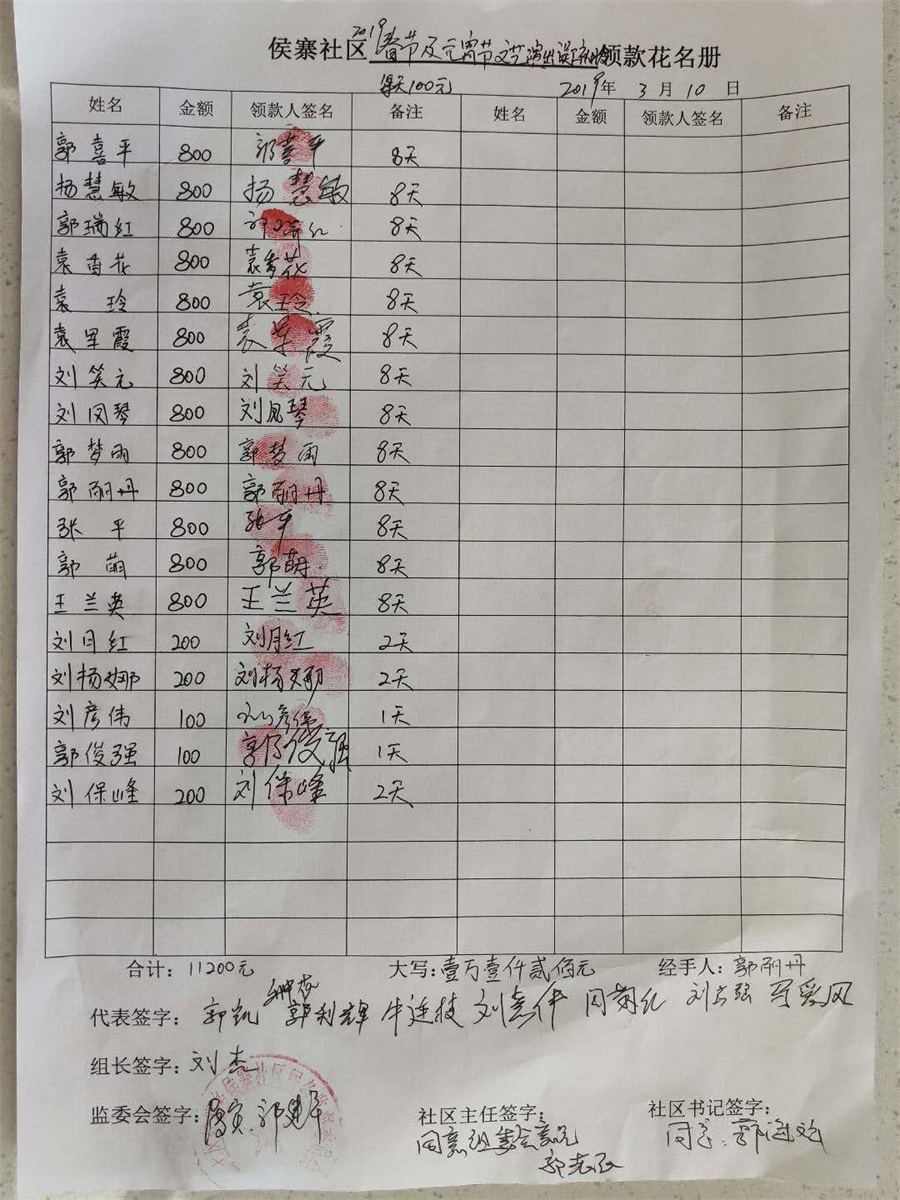 侯寨社区2019春节及元宵节文艺演出误工补贴领款花名册
每天100元 2019年 3月 10日
姓名 金额 领款人签名 备注 姓名 金额 领款人签名 备注
郭喜平 800 郭喜平 8天
杨慧敏 800 杨慧敏 8天
郭瑞红 800 郭瑞红 8天
袁香花 800 袁香花 8天
袁玲 800 袁玲 8天
袁军霞 800 袁军霞 8天
刘笑元 800 刘笑元 8天
刘凤琴 800 刘凤琴 8天
郭梦雨 800 郭梦雨 8天
郭丽丹 800 郭丽丹 8天
张平 800 张平 8天
郭萌 800 郭萌 8天
王兰英 800 王兰英 8天
刘月红 200 刘月红 2天
刘杨娜 200 刘杨娜 2天
刘彦伟 100 刘彦伟 1天
郭俊强 100 郭俊强 1天
刘保峰 200 刘保峰 2天
合计：11200元 大写：壹万壹仟贰佰元 经手人：郭丽丹
代表签字： 郭凯 郭利辉 牛连枝 刘志伟 周菊红 刘占强
组长签字：刘杰
监委会签字： 社区主任签字： 社区书记签字：
同意组委会意见 同意